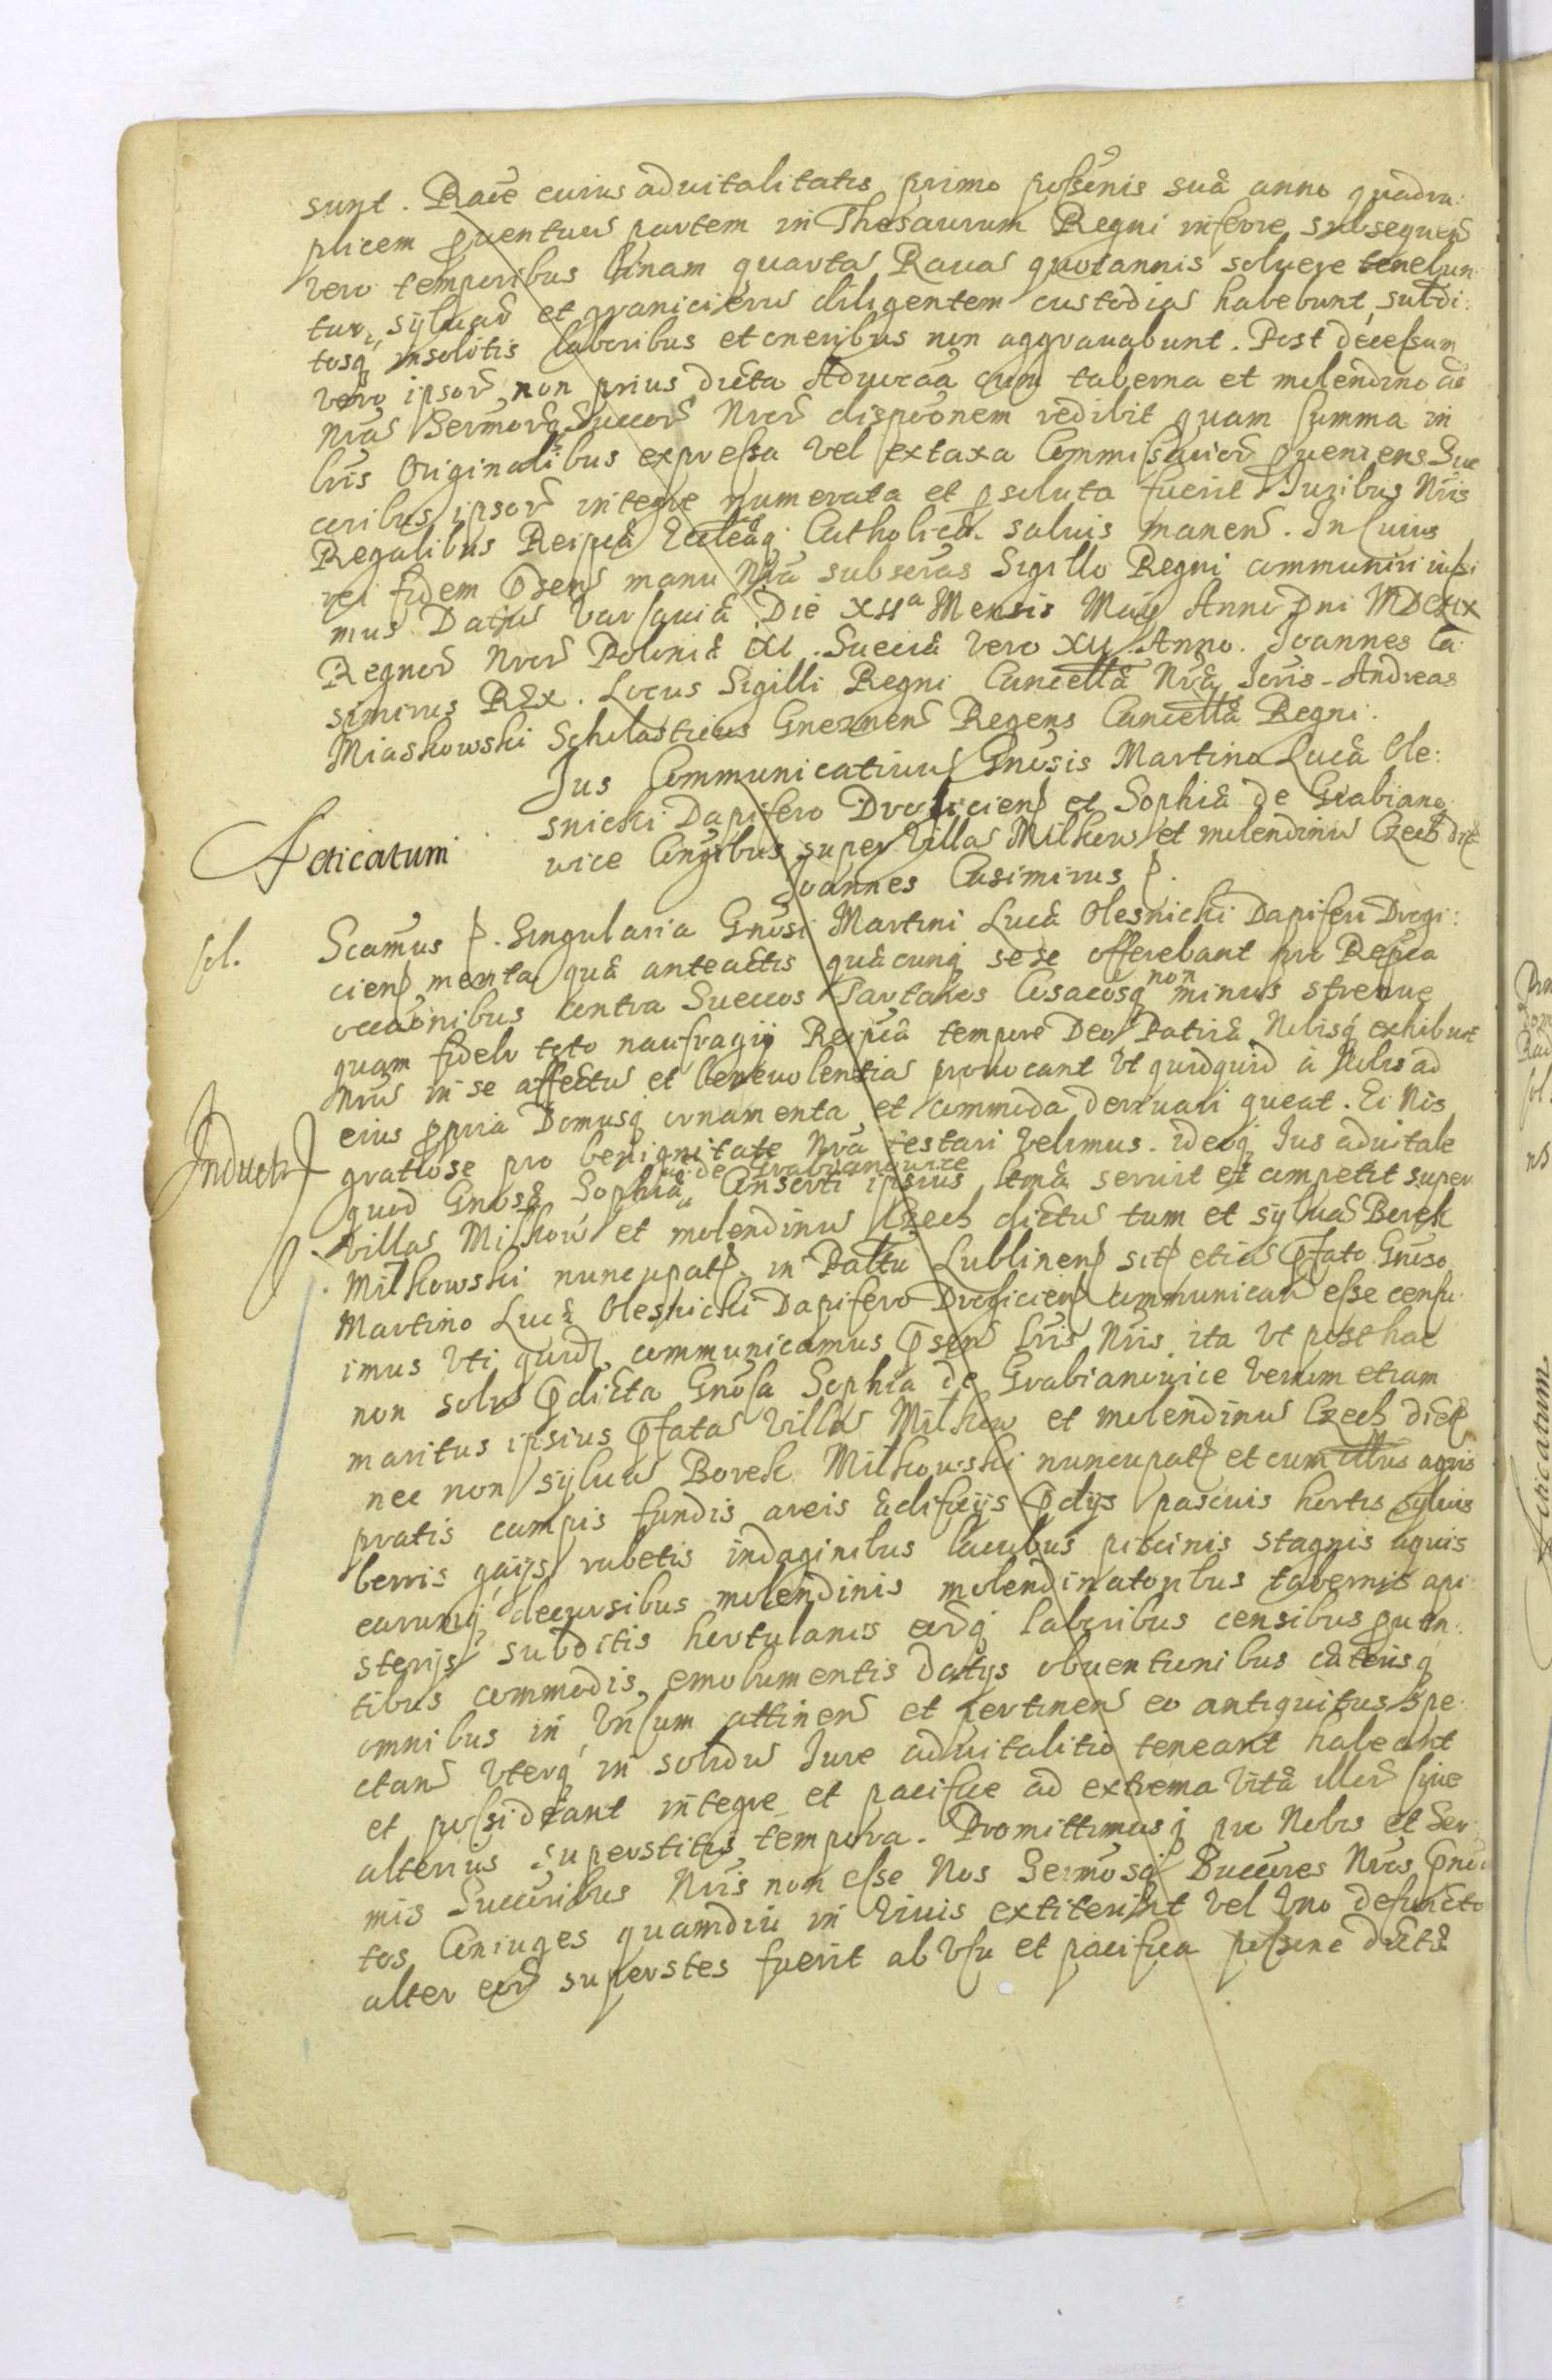 sunt. Raõe cuius aduitalitatis primo possẽnis suæ anno quadru:
plicem ꝓuentuũ partem in Thesaurum Regni inferre, subsequeñ
vero temporibus binam quartã Rauã quotannis soluere tenebun:
tur, syluarũ et granicierũ diligentem custodiã habebunt, subdi:
tosq́ insolitis laboribus et oneribus non aggrauabunt. Post decessum
vero ipsorũ non prius dicta Aduocãa cum taberna et molendino ad
Nrãm Sermorũq́ Succorũ Nrorũ dispõonem redibit quam summa in
Lris Originalibus expressa vel ex taxa Commissariorũ ꝓueniens Suc
coribus ipsorũ integre numerata et ꝑsoluta fuerit. Juribus Nris
Regalibus Reipcæ Eccleæq́ Catholicæ saluis maneñ. In cuius
rei fidem p̃señ manu Nrã subscrãs Sigillo Regni communiri iussi
mus. Datũ Varsauiæ Die XIIa Mensis Maij Anno Dni MDCLIX
Regnorũ Nrorũ Poloniæ XI. Sueciæ vero XII Anno. Joannes Ca
simirus REX. Locus Sigilli Regni Cancellæ Nræ Ioris. Andreas
Miaskowski Scholasticus Gneznen̄ Regens Cancellæ Regni.
Jus Communicatiuũ Gnosis Martino Lucæ Ole:
snicki Dapifero Drohicien̄ et Sophiæ de Grabiano
Feticatum
wice Coniũgibus super Villã Milkow et molendinũ Czech dict̄
Joannes Casimirus ꝑ.
sol.
Scamus ꝑ. Singularia Gnosi Martini Lucæ Olesnicki Dapiferi Drogi:
cien̄ merita quæ anteactis quãcunq́ sese offerebant pro Repca
occãonibus contra Suecos Tartaros Cosacosq́ non minus strenue
quam fideli toto naufragij Reipcæ tempore Deo Patriæ Nobisq́ exhibuit
Nrũ in se affectũ et beneuolentiã prouocant Vt quidquid à Nobis ad
eius ꝓpria Domusq́ ornamenta et commoda deriuari queat. Ei Nos
Induct̄
gratiose pro benignitate Nrã testari velimus. ideoq́ Jus aduitale
quod Gnosæ Sophiæ de Grabianowice Consorti ipsius Ltmæ seruit et competit super
Villã Milkow et molendinũ Czech dictũ tum et syluã Borek
Milkowski nuncupat̄. in Pałłtu Lublinen̄ sit̄ etiã p̃fato Gnoso
Martino Lucæ Olesnicki Dapifero Drohicien̄ communican̄ esse censu
imus Vti quid̄ communicamus p̃señ Lris Nris. ita Vt posthac
non solũ p̃dicta Gnosa Sophia de Grabianowice verum etiam
maritus ipsius p̃fatã Villã Milkow et molendinũ Czech dict̄
nec non syluã Borek Milkowski nuncupat̄ et cum agris
pratis campis fundis areis ædificijs p̃dijs pascuis hortis syluis
borris gaijs rubetis indaginibus lacubus piscinis stagnis aquis
earumq́ decursibus molendinis molendinatoribus tabernis api
sterijs subditis hortulanis eorũq́ laboribus censibus ꝓuen:
tibus commodis, emolumentis datijs obuentionibus cæterisq́
omnibus in Vniũsum attineñ et pertineñ eo antiquitus spe
ctañ Vterq́ in solidũ Jure aduitalitio teneant habeant
et possideant integre et pacifice ad extrema Vitæ illorũ siue
alterius superstitis tempora. Promittimusq́ pro Nobis et Ser:
mis Succoribus Nris non esse Nos Sermosq́ Succores Nros p̃no:
tos Coniuges quamdiu in Viuis extiterint vel Vno defuncto
alter eorũ superstes fuerit ab Vsu et pacifica possẽne dictæ